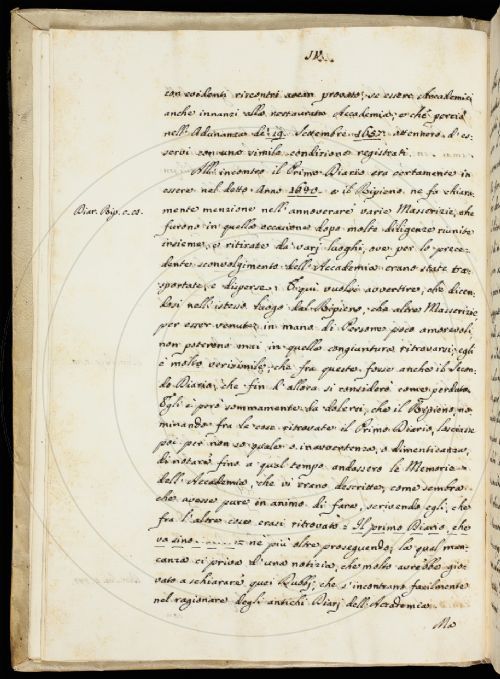 IV.
con evidenti riscontri avean provato, se essere Accademici
anche innanzi alla restaurata Accademia, e che perciò
nell' Adunanza de' 19. Settembre 1657. ottennero d'es-
servi con una simile condizione registrati.
All' incontro il Primo Diario era certamente in
essere nel detto Anno 1640. e il Ripieno ne fa chiara-
Diar. Rip. c. 63.
mente menzione nell' annoverare varie Masserizie, che
furono in quella occasione dopo molte diligenze riunite
insieme, e ritirate da varj luoghi, ove per lo prece-
dente sconvolgimento dell' Accademia erano state tra-
sportate, e disperse. E qui vuolsi avvertire, che dicen-
dosi nell' istesso luogo dal Ripieno, che altre Masserizie
per esser venute in mano di Persone poco amorevoli
non poterono mai in quella congiuntura ritrovarsi; egli
è molto verisimile, che fra queste fosse anche il Secon-
do Diario, che fin d' allora si considerò come perduto.
Egli è però sommamente da dolersi, che il Ripieno, no-
minando fra le cose ritrovate il Primo Diario, lasciasse
poi per non so quale o inavvertenza, o dimenticanza,
di notare fino a qual tempo andassero le Memorie
dell' Accademia, che vi erano descritte, come sembra
che avesse pure in animo di fare, scrivendo egli, che
fra l' altre cose erasi ritrovato = Il primo Diario, che
va sino ........ = ne più oltre proseguendo; la qual man-
canza ci priva d' una notizia, che molto avrebbe gio-
vato a schiarare quei Dubbj, che s' incontrano facilmente
nel ragionare degli antichi Diarj dell' Accademia.
Ma